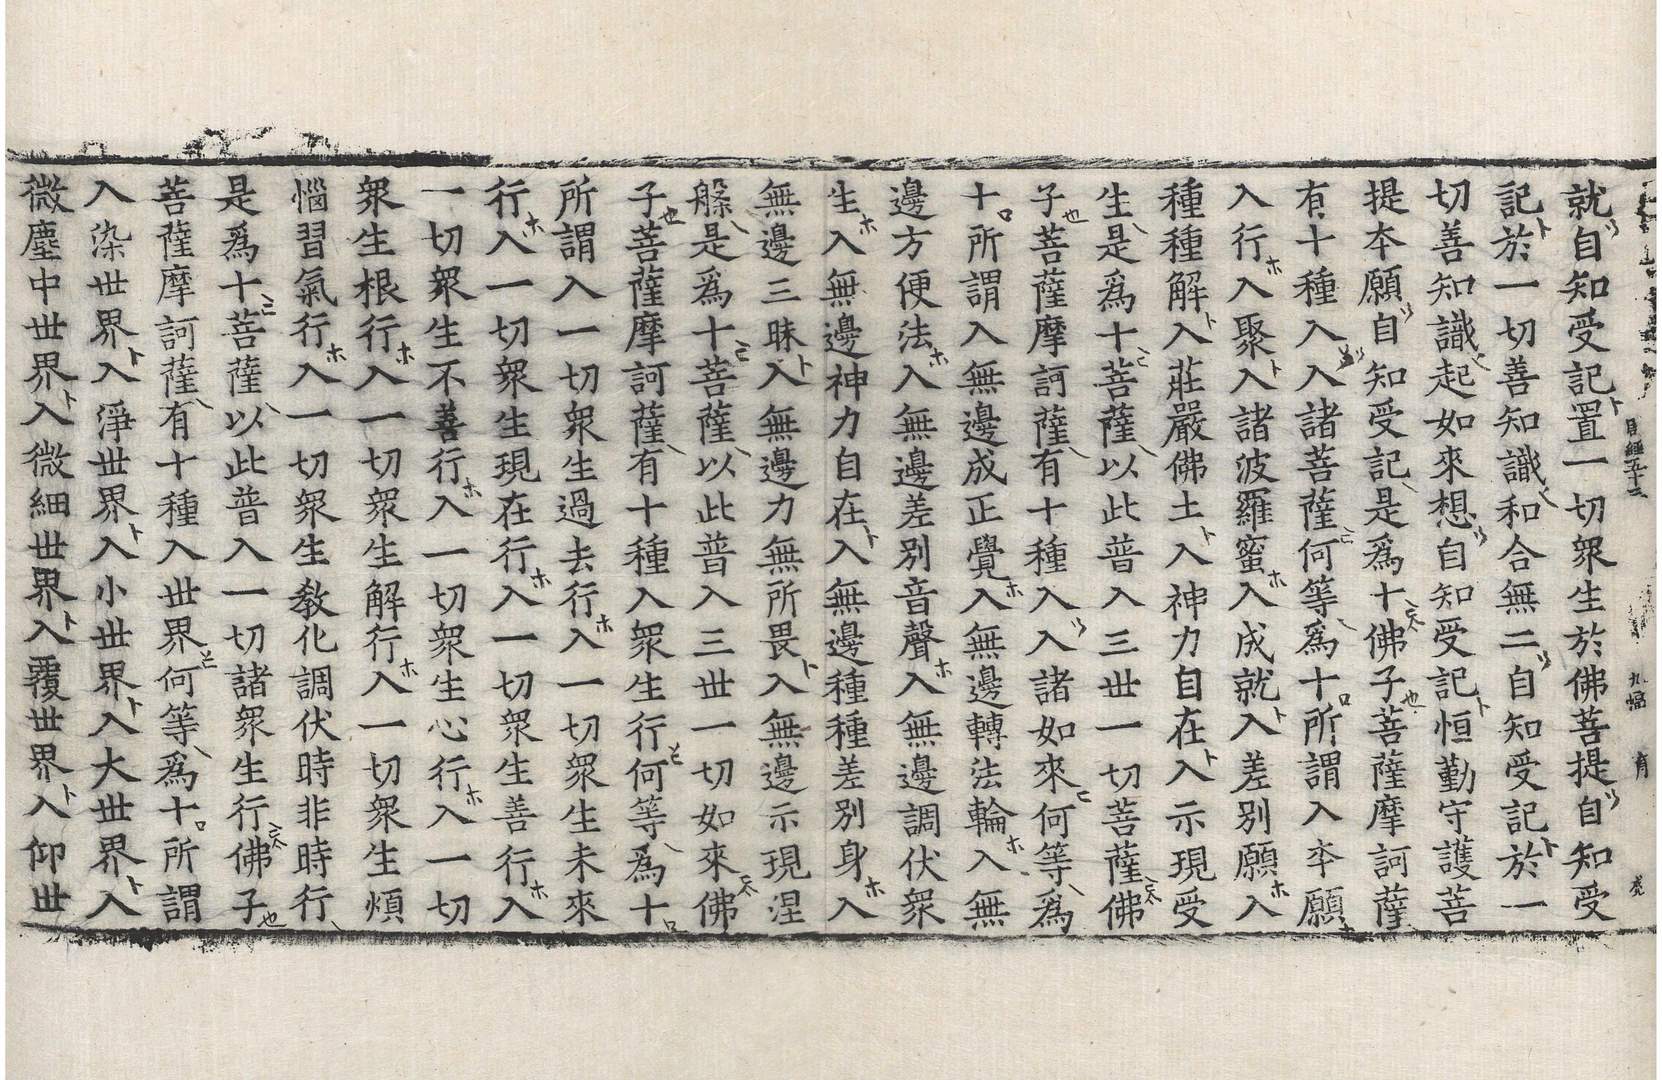 經五十三 九幅
就自知受記置一切衆生於佛菩提自知受
記於一切善知識和合無二自知受記於一
切善知識起如來想自知受記恒勤守護菩
提夲願自知受記是爲十佛子菩薩摩訶薩
有十種入入諸菩薩何等爲十所謂入夲願
入行入聚入諸波羅蜜入成就入差别願入
種種解入莊嚴佛土入神力自在入示現受
生是爲十菩薩以此普入三世一切菩薩佛
子菩薩摩訶薩有十種入入諸如來何等爲
十所謂入無邊成正覺入無邊轉法輪入無
邊方便法入無邊差别音聲入無邊調伏衆
生入無邊神力自在入無邊種種差别身入
無邊三昧入無邊力無所畏入無邊示現涅
槃是爲十菩薩以此普入三世一切如來佛
子菩薩摩訶薩有十種入衆生行何等爲十
所謂入一切衆生過去行入一切衆生未來
行入一切衆生現在行入一切衆生善行入
一切衆生不善行入一切衆生心行入一切
衆生根行入一切衆生解行入一切衆生煩
惱習氣行入一切衆生教化調伏時非時行
是爲十菩薩以此普入一切諸衆生行佛子
菩薩摩訶薩有十種入世界何等爲十所謂
入染世界入淨世界入小世界入大世界入
微塵中世界入微細世界入覆世界入仰世